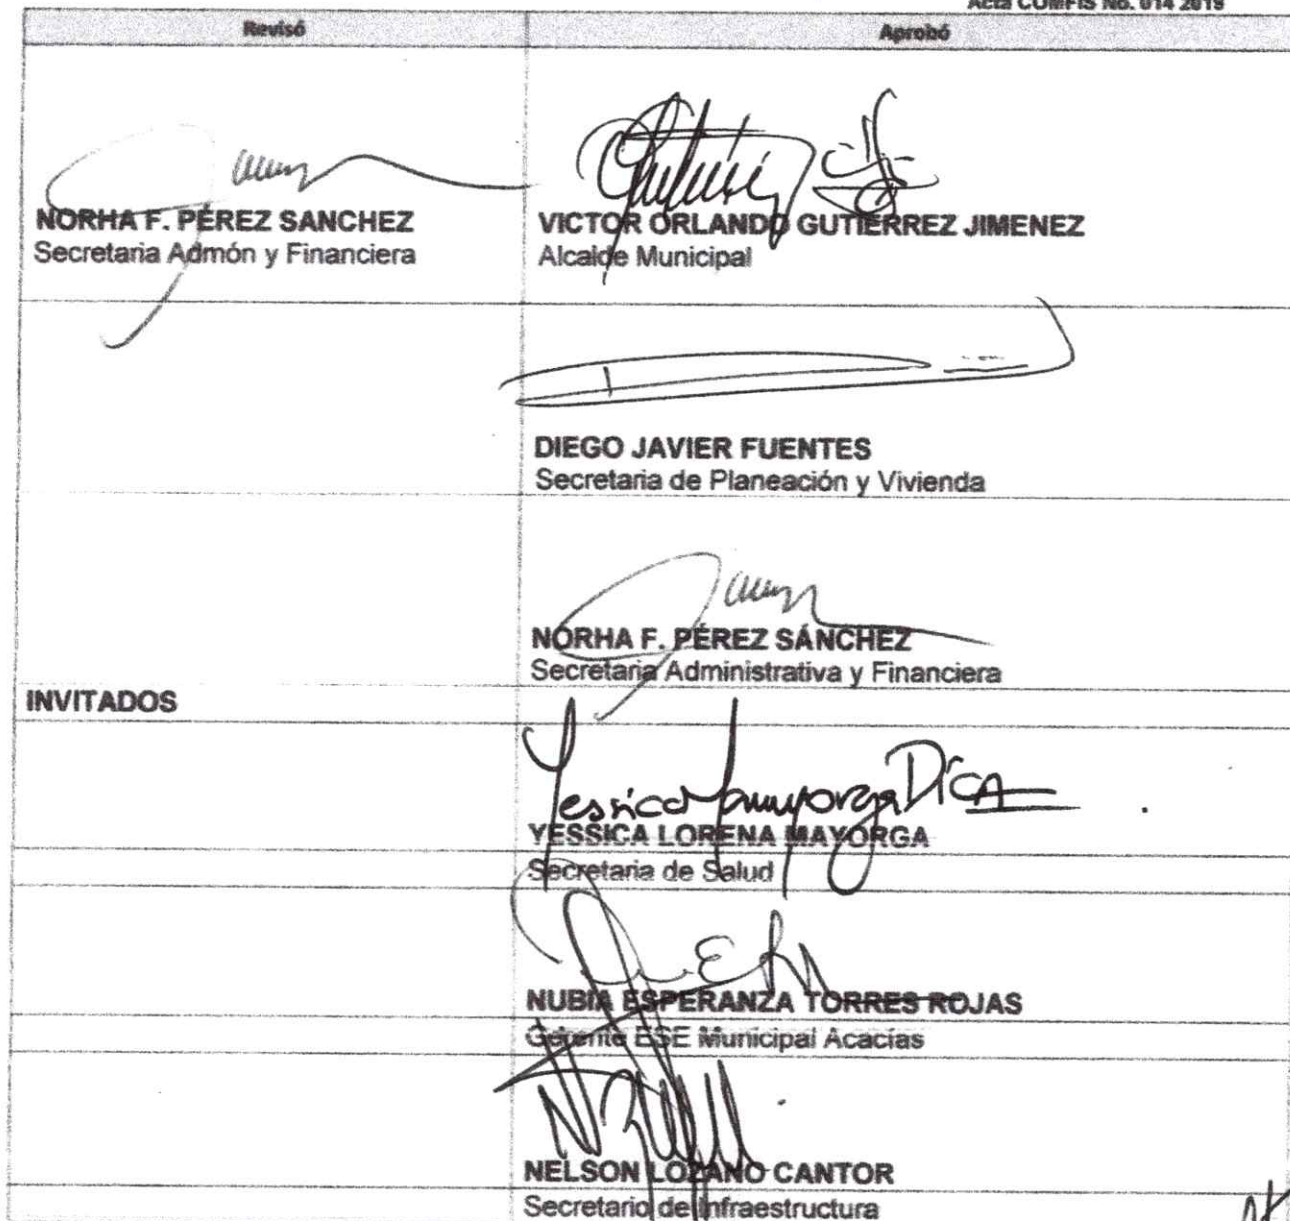 Acta COMFIS No. 014 2019
Revisó
Aprobó
NORHA F. PÉREZ SANCHEZ
Secretaria Admón y Financiera
VICTOR ORLANDO GUTIERREZ JIMENEZ
Alcalde Municipal
DIEGO JAVIER FUENTES
Secretaria de Planeación y Vivienda
NORHA F. PÉREZ SÁNCHEZ
Secretaria Administrativa y Financiera
INVITADOS
YESSICA LORENA MAYORGA
Secretaria de Salud
NUBIA ESPERANZA TORRES ROJAS
Gerente ESE Municipal Acacías
NELSON LOZANO CANTOR
Secretario de Infraestructura